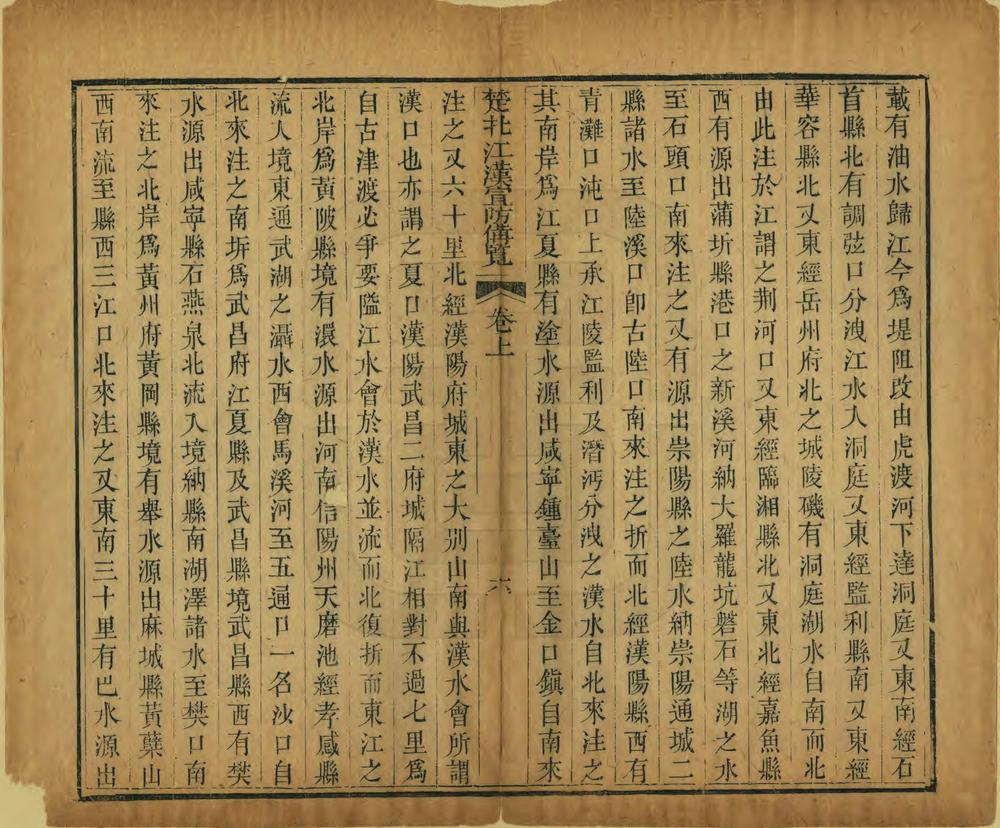 載有油水歸江今爲堤阻改由虎渡河下達洞庭又東南經石
首縣北有調弦口分洩江水入洞庭又東經監利縣南又東經
華容縣北又東經岳州府北之城陵磯有洞庭湖水自南而北
由此注於江謂之荆河口又東經臨湘縣北又東北經嘉魚縣
西有源出蒲圻縣港口之新溪河納大羅龍坑磐石等湖之水
至石頭口南來注之又有源出崇陽縣之陸水納崇陽通城二
縣諸水至陸溪口卽古陸口南來注之折而北經漢陽縣西有
青灘口沌口上承江陵監利及潛沔分洩之漢水自北來注之
其南岸爲江夏縣有塗水源出咸寧鍾臺山至金口鎮自南來
楚北江漢宣防備覽 卷上 六
注之又六十里北經漢陽府城東之大別山南與漢水會所謂
漢口也亦謂之夏口漢陽武昌二府城隔江相對不過七里爲
自古津渡必爭要隘江水會於漢水並流而北復折而東江之
北岸爲黃陂縣境有澴水源出河南信陽州天磨池經孝感縣
流入境東通武湖之灄水西會馬溪河至五通口一名沙口自
北來注之南圻爲武昌府江夏縣及武昌縣境武昌縣西有樊
水源出咸寧縣石燕泉北流入境納縣南湖澤諸水至樊口南
來注之北岸爲黃州府黃岡縣境有舉水源出麻城縣黃蘗山
西南流至縣西三江口北來注之又東南三十里有巴水源出